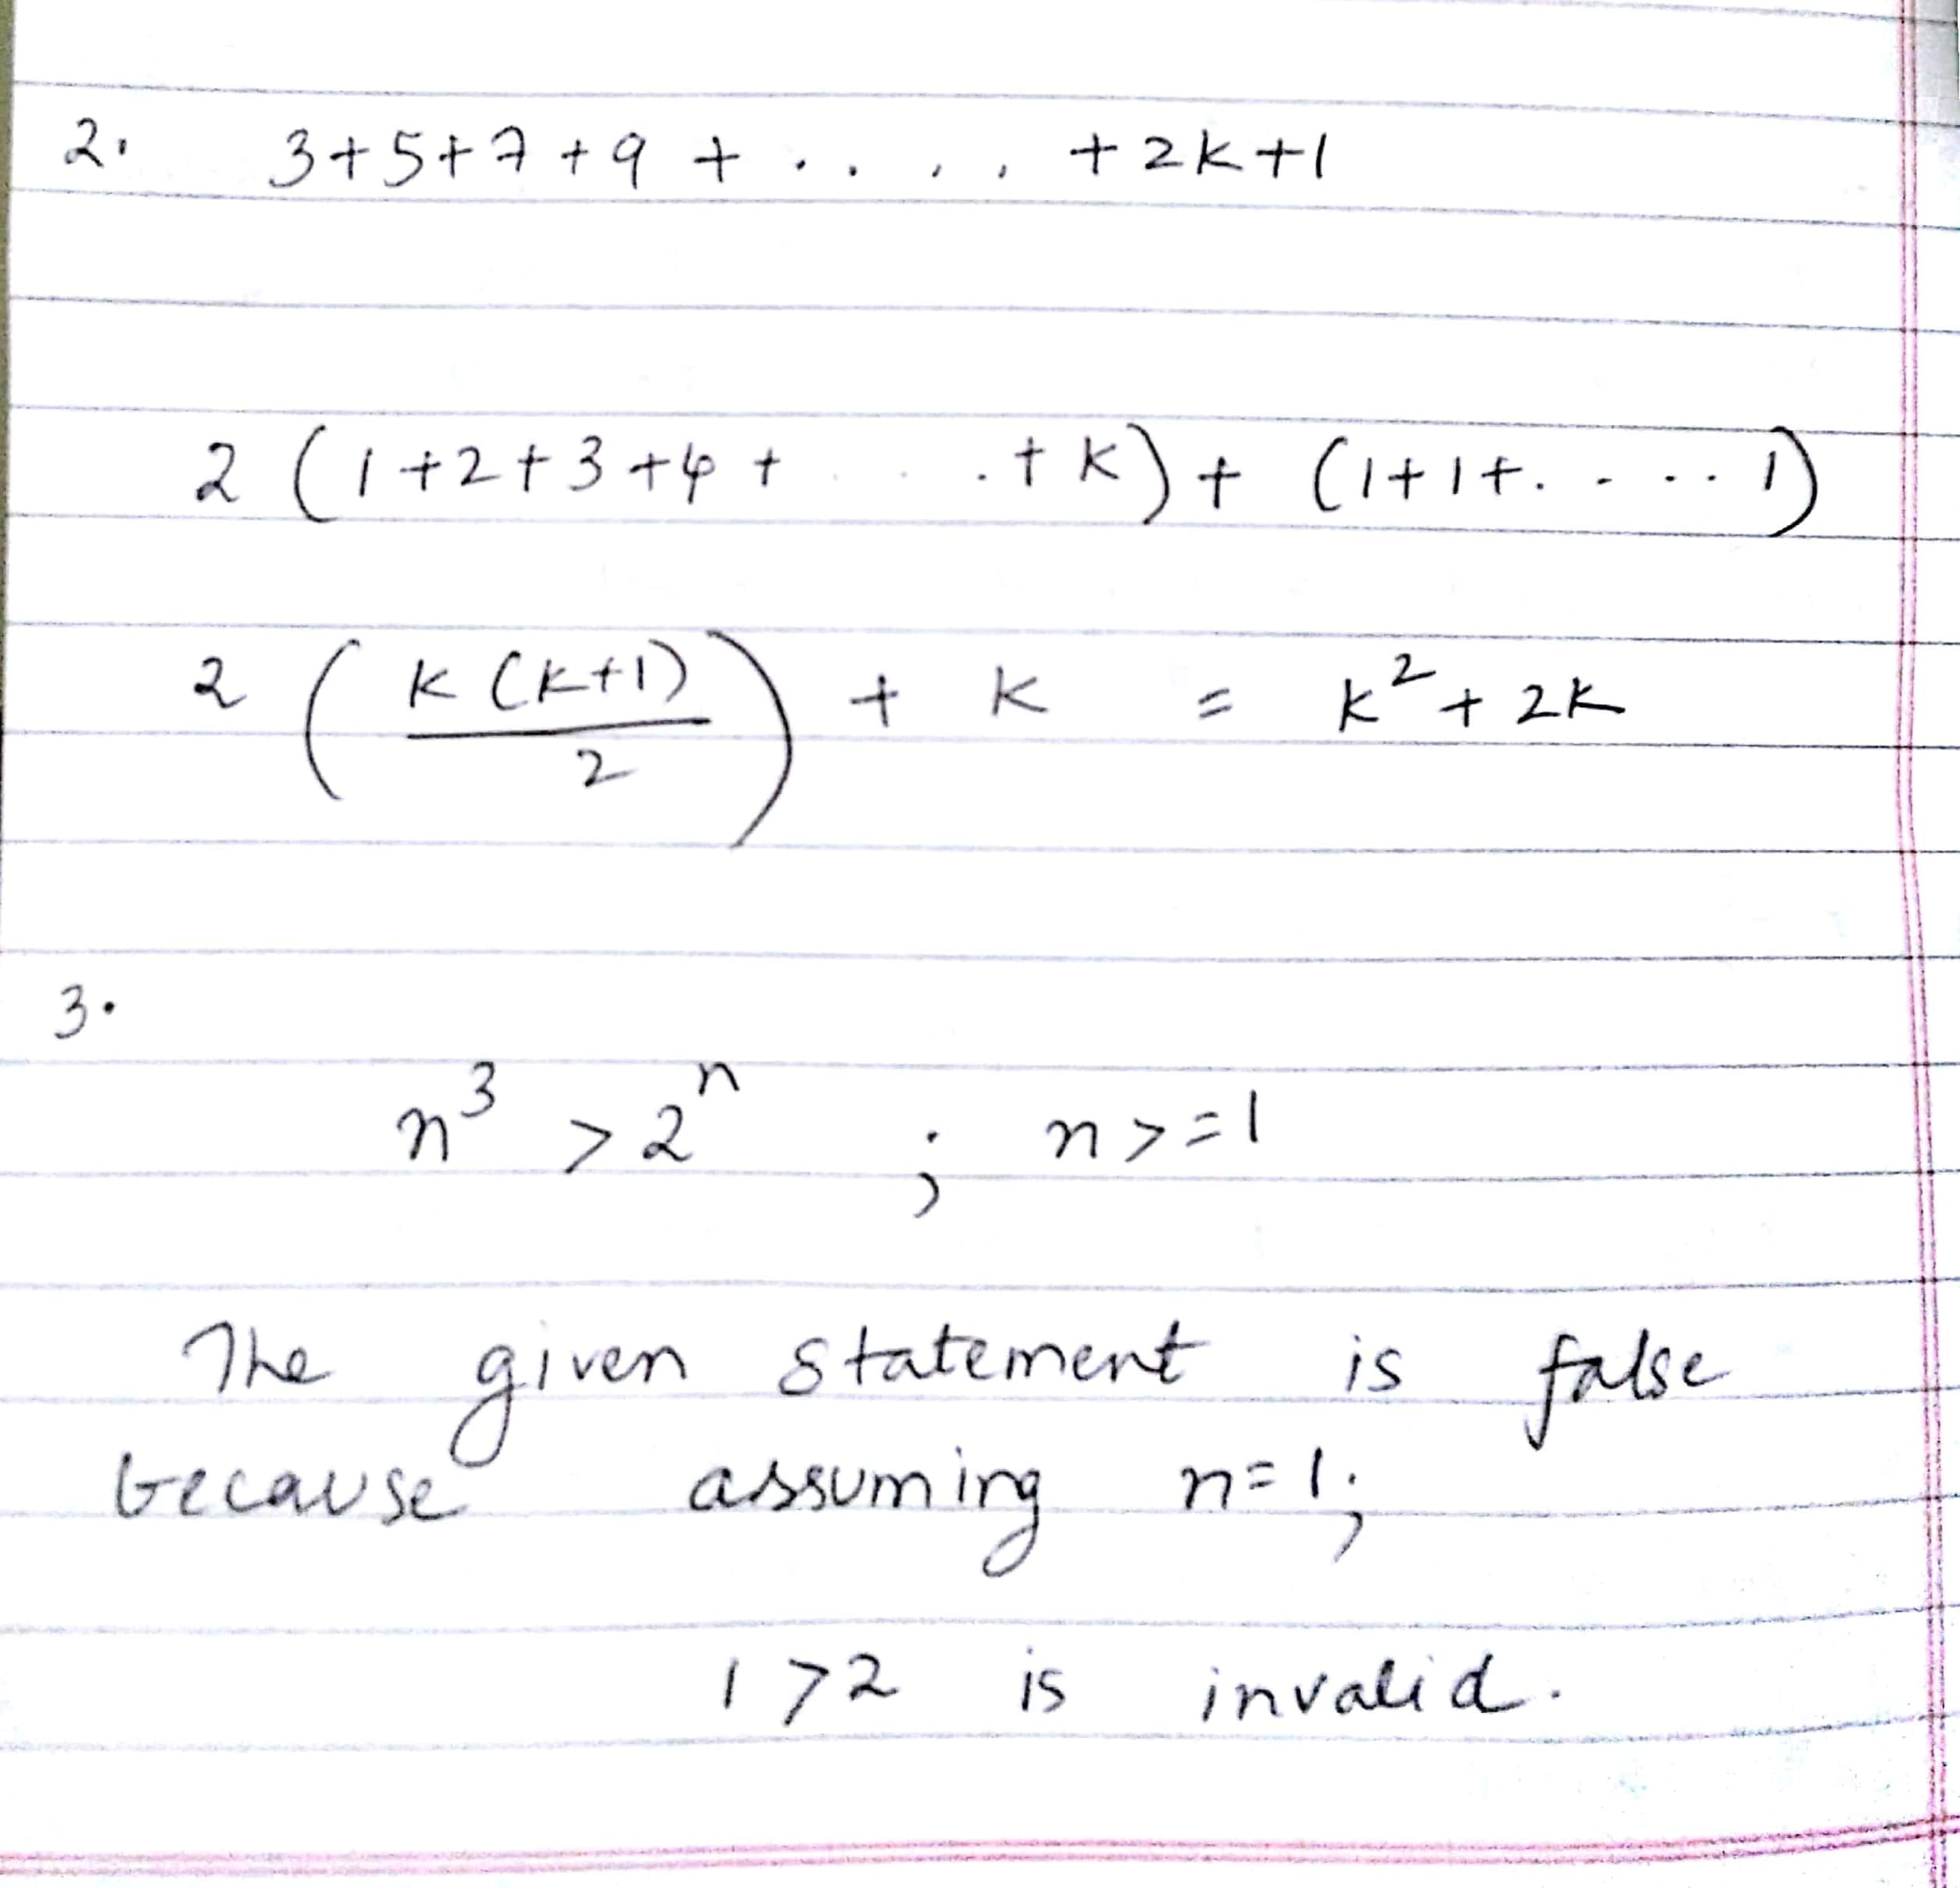 2. 3+5+7+9+.....+2k+1
2(1+2+3+4+...+k)+(1+1+.....1)
2(k(k+1)/2)+k = k²+2k
3.
n³>2ⁿ ; n>=1
The given statement is false
because assuming n=1;
1>2 is invalid.